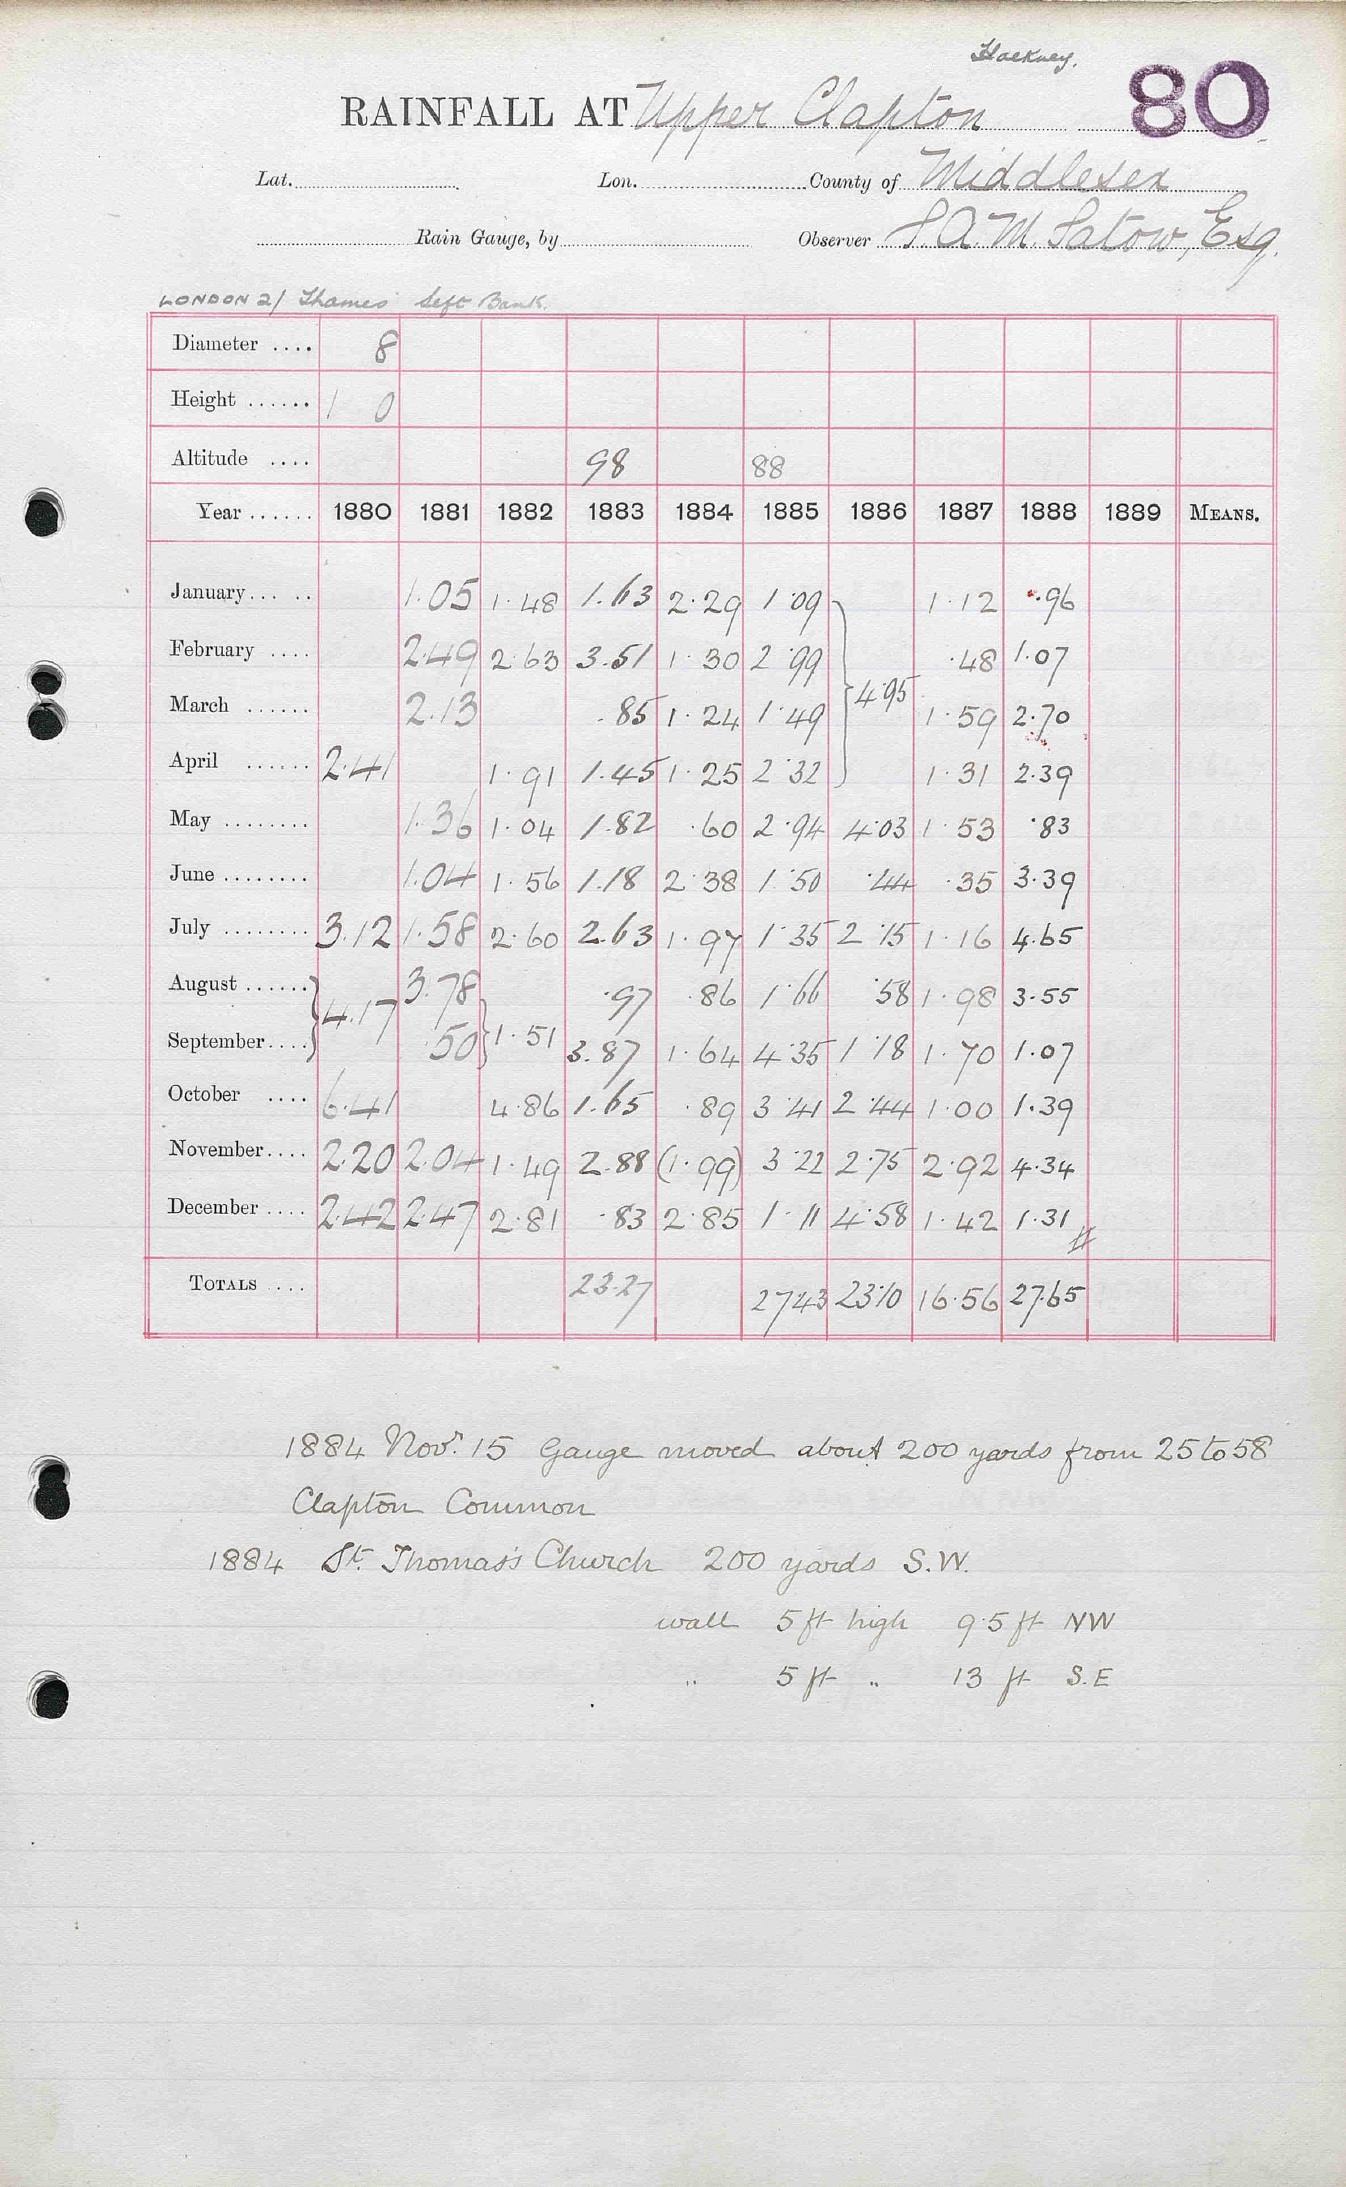 Hackney.
RAINFALL AT Upper Clapton 80
Lat. Lon. County of Middlesex
Rain Gauge, by Observer S.A.M. Satow, Esq.
LONDON 2/ Thames Left Bank.
Diameter .... 8
Height ...... 1 0
Altitude .... 98 88
Year ...... 1880 1881 1882 1883 1884 1885 1886 1887 1888 1889 MEANS.
January... .. 1.05 1.48 1.63 2.29 1.09 1.12 .96
February .... 2.49 2.63 3.51 1.30 2.99 .48 1.07
March ...... 2.13 .85 1.24 1.49 4.95 1.59 2.70
April ...... 2.41 1.91 1.45 1.25 2.32 1.31 2.39
May ........ 1.36 1.04 1.82 .60 2.94 4.03 1.53 .83
June ........ 1.04 1.56 1.18 2.38 1.50 .44 .35 3.39
July ........ 3.12 1.58 2.60 2.63 1.97 1.35 2.15 1.16 4.65
August ...... } 4.17 3.78 } 1.51 .97 .86 1.66 .58 1.98 3.55
September.... .50 3.87 1.64 4.35 1.18 1.70 1.07
October .... 6.41 4.86 1.65 .89 3.41 2.44 1.00 1.39
November.... 2.20 2.04 1.49 2.88 (1.99) 3.22 2.75 2.92 4.34
December .... 2.42 2.47 2.81 .83 2.85 1.11 4.58 1.42 1.31 //
TOTALS .... 23.27 27.43 23.10 16.56 27.65
1884 Novr. 15 Gauge moved about 200 yards from 25 to 58
Clapton Common
1884 St. Thomas's Church 200 yards S.W.
wall 5 ft high 9.5 ft NW
" 5 ft " 13 ft S.E